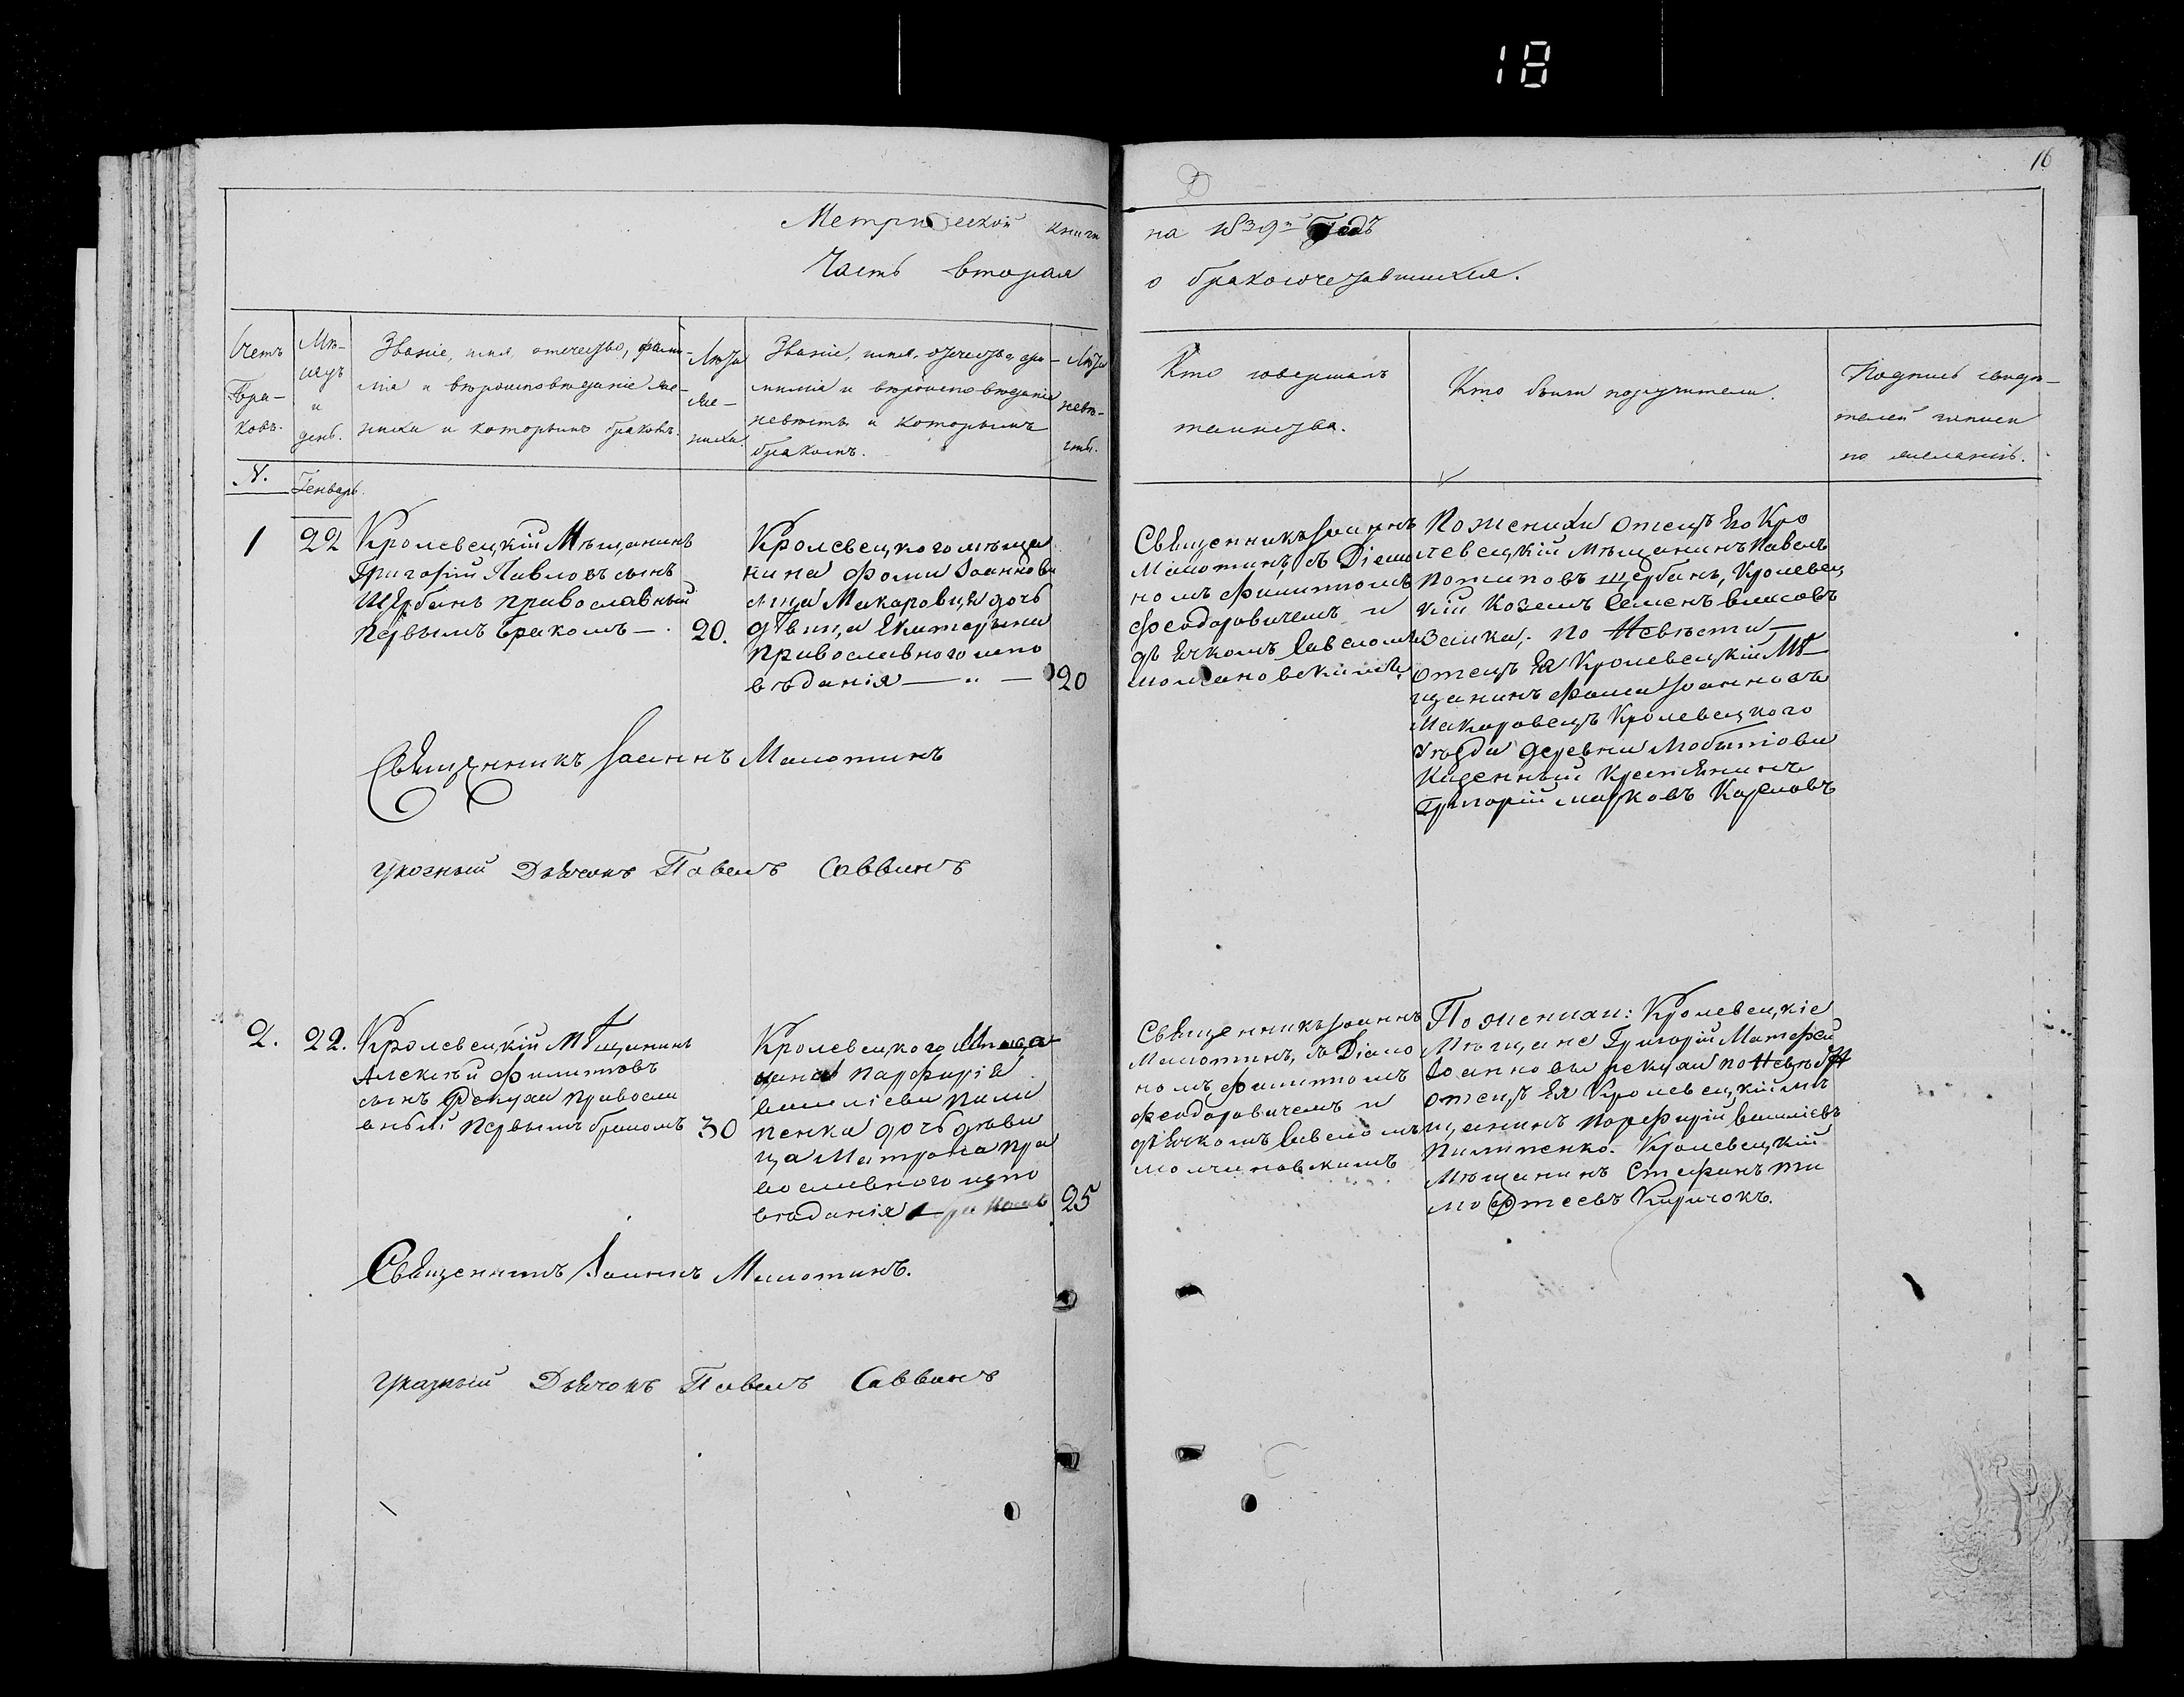 18
16
Метрической книги
Часть вторая
на 1839й Годъ
о бракосочетавшихся.
Счетъ
Бра-
ковъ.
Мѣ-
сяцъ
и
день.
Званіе, имя, отечество, фами-
лія и вѣроисповѣданіе же-
ниха и которымъ бракомъ.
Лѣта
же-
ниха.
Званіе, имя, отечество, фа-
милія и вѣроисповѣданіе
невѣсты и которымъ
бракомъ.
Лѣта
невѣ-
сты.
Кто совершалъ
таинство.
Кто были поручители.
Подпись свидѣ-
телей записи
по желанію.
N.
Генварь.
1
22
Кролевецкій Мѣщанинъ
Григорій Павловъ сынъ
Щербань православный
первымъ бракомъ —
20.
Кролевецкого мѣща
нина Фомы Іоаннова
сына Макаровца дочь
дѣвица Екатерина
православного испо
вѣданія — „ —
20
Священникъ Іоаннъ
Малотинъ, съ Діако
номъ Филиппомъ
Феодоровичемъ и
дьячкомъ Савелом
молчановскимъ
По женихи отецъ Его Кро
левецкій мѣщанинъ Павелъ
Потаповъ Щербань, Кролевец
кій Козакъ Семенъ власовъ
заика; по Невѣсти —
отецъ Ея Кролевецкій Мѣ
щанинъ Фома Іоанновъ
Макаровецъ Кролевецкого
уѣзда деревни Любитова
Казенный Крестянинъ
Григорій марковъ Карповъ
Священникъ Іоаннъ Малотинъ
Указный Дьячокъ Павелъ Саввинъ
2.
22.
Кролевецкій Мѣщанинъ
Алексѣй Филипповъ
сынъ Рекуха Правосла
вный первымъ бракомъ
30
Кролевецкого Мѣща
нина Парфирія
василіева Пили
пенка дочь дѣви
ца Матрона пра
вославного испо
вѣданія
25
Священникъ Іоаннъ
Малотинъ, съ Діако
номъ Филиппомъ
Феодоровичемъ и
дьячкомъ Савелом
молчановскимъ
По женихи: Кролевецкіе
Мѣщане Григорій Матфей
Іоанновы рекухи по Невѣстѣ
отецъ Ея Кролевецкій мѣ
щанинъ Порфирій василіевъ
Пилипенко. Кролевецкій
Мѣщанинъ Стефанъ ти
мофтеевъ Киричокъ.
Священникъ Іоаннъ Малотинъ.
Указный Дьячокъ Павелъ Саввинъ